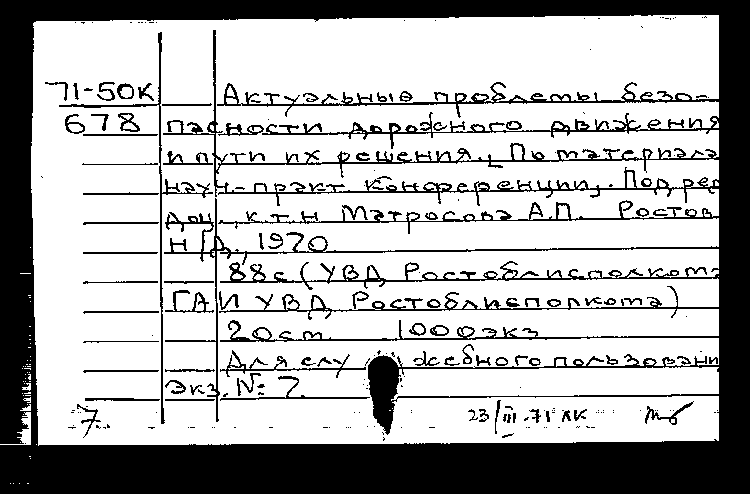 71-50К Актуальные проблемы безо-
678 пасности дорожного движения
и пути их решения. [По материала
науч-практ конференции]. Под ред
доц., к.т.н Матросова А.П. Ростов
Н/Д., 1970.
88с (УВД Ростоблисполкома
ГАИ УВД Ростоблисполкома)
20см 1000экз
Для служебного пользовани
Экз. № 7.
7 23/III-71 ЛК